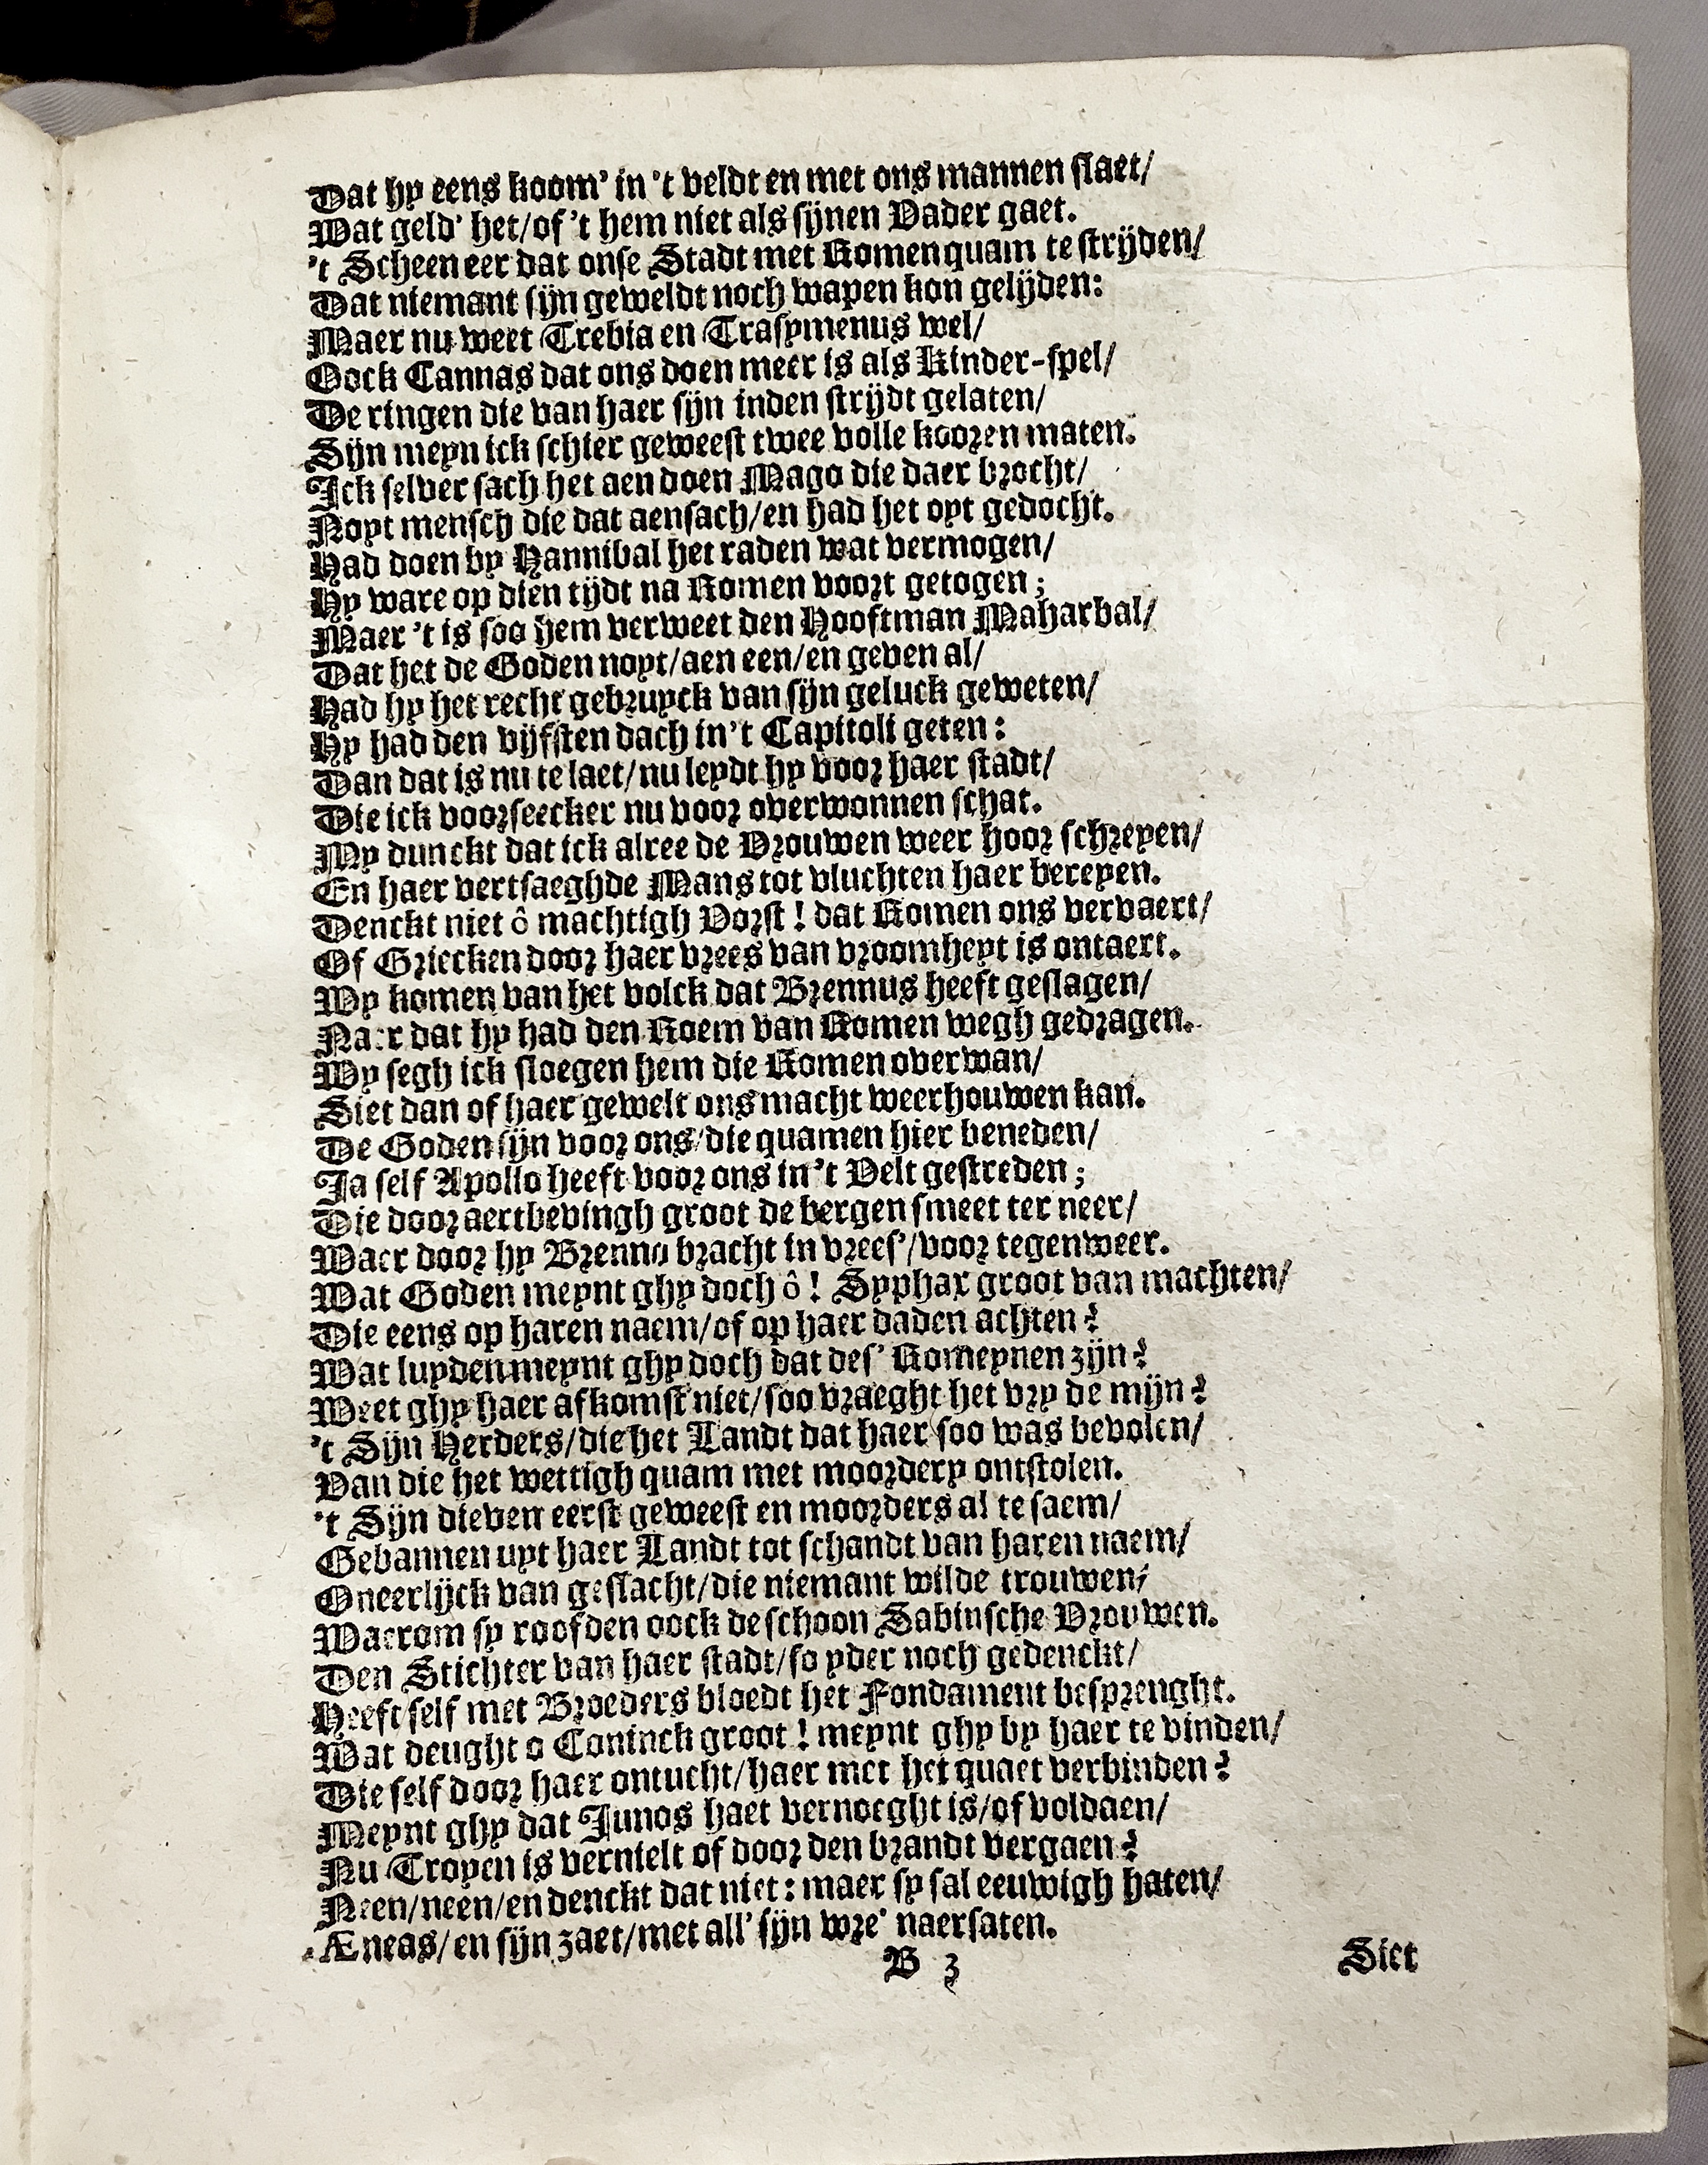 Dat hy eens koom' in 't veldt en met ons mannen slaet/
Wat geld' het/of 't hem niet als sijnen Vader gaet.
't Scheen eer dat onse Stadt met Romen quam te strijden/
Dat niemant sijn geweldt noch wapen kon gelijden:
Maer nu weet Trebia en Trasymenus wel/
Oock Cannas dat ons doen meer is als Kinder-spel/
De ringen die van haer sijn inden strijdt gelaten/
Sijn meyn ick schier geweest twee volle koozen maten.
Ick selver sach het aen doen Mago die daer brocht/
Noyt mensch die dat aensach/en had het oyt gedocht.
Had doen by Hannibal het raden wat vermogen/
Hy ware op dien tijdt na Romen voort getogen;
Maer 't is soo hem verweet den Hooftman Maharbal/
Dat het de Goden noyt/aen een/en geven al/
Had hy het recht gebruyck van sijn geluck geweten/
Hy had den vijfsten dach in't Capitoli geten:
Dan dat is nu te laet/nu leydt hy voor haer stadt/
Die ick voorseecker nu voor overwonnen schat.
My dunckt dat ick alree de Vrouwen weer hoor schreyen/
En haer vertsaeghde Mans tot vluchten haer bereyen.
Denckt niet ô machtigh Vorst! dat Romen ons vervaert/
Of Griecken door haer vrees van vroomheyt is ontaert.
Wy komen van het volck dat Brennus heeft geslagen/
Naer dat hy had den Roem van Romen wegh gedragen.
Wy segh ick sloegen hem die Romen overwan/
Siet dan of haer gewelt ons macht weerhouwen kan.
De Goden sijn voor ons/die quamen hier beneden/
Ja self Apollo heeft voor ons in't Velt gestreden;
Die door aertbevingh groot de bergen smeet ter neer/
Waer door hy Brenno bracht in vrees'/voor tegenweer.
Wat Goden meynt ghy doch ô! Syphax groot van machten/
Die eens op haren naem/of op haer daden achten?
Wat luyden meynt ghy doch dat des' Romeynen zijn?
Weet ghy haer afkomst niet/soo vraeght het vry de mijn?
't Sijn Herders/die het Landt dat haer soo was bevolen/
Van die het wettigh quam met moordery ontstolen.
't Sijn dieven eerst geweest en moorders al te saem/
Gebannen uyt haer Landt tot schandt van haren naem/
Oneerlijck van geslacht/die niemant wilde trouwen;
Waerom sy roofden oock de schoon Sabinsche Vrouwen.
Den Stichter van haer stadt/so yder noch gedenckt/
Heeft self met Broeders bloedt het Fondament besprenght.
Wat deught o Coninck groot! meynt ghy by haer te vinden/
Die self door haer ontucht/haer met het quaet verbinden?
Meynt ghy dat Junos haet vernoeght is/of voldaen/
Nu Troyen is vernielt of door den brandt vergaen?
Neen/neen/en denckt dat niet: maer sy sal eeuwigh haten/
Æneas/en sijn zaet/met all' sijn wre' naersaten.
B 3
Siet